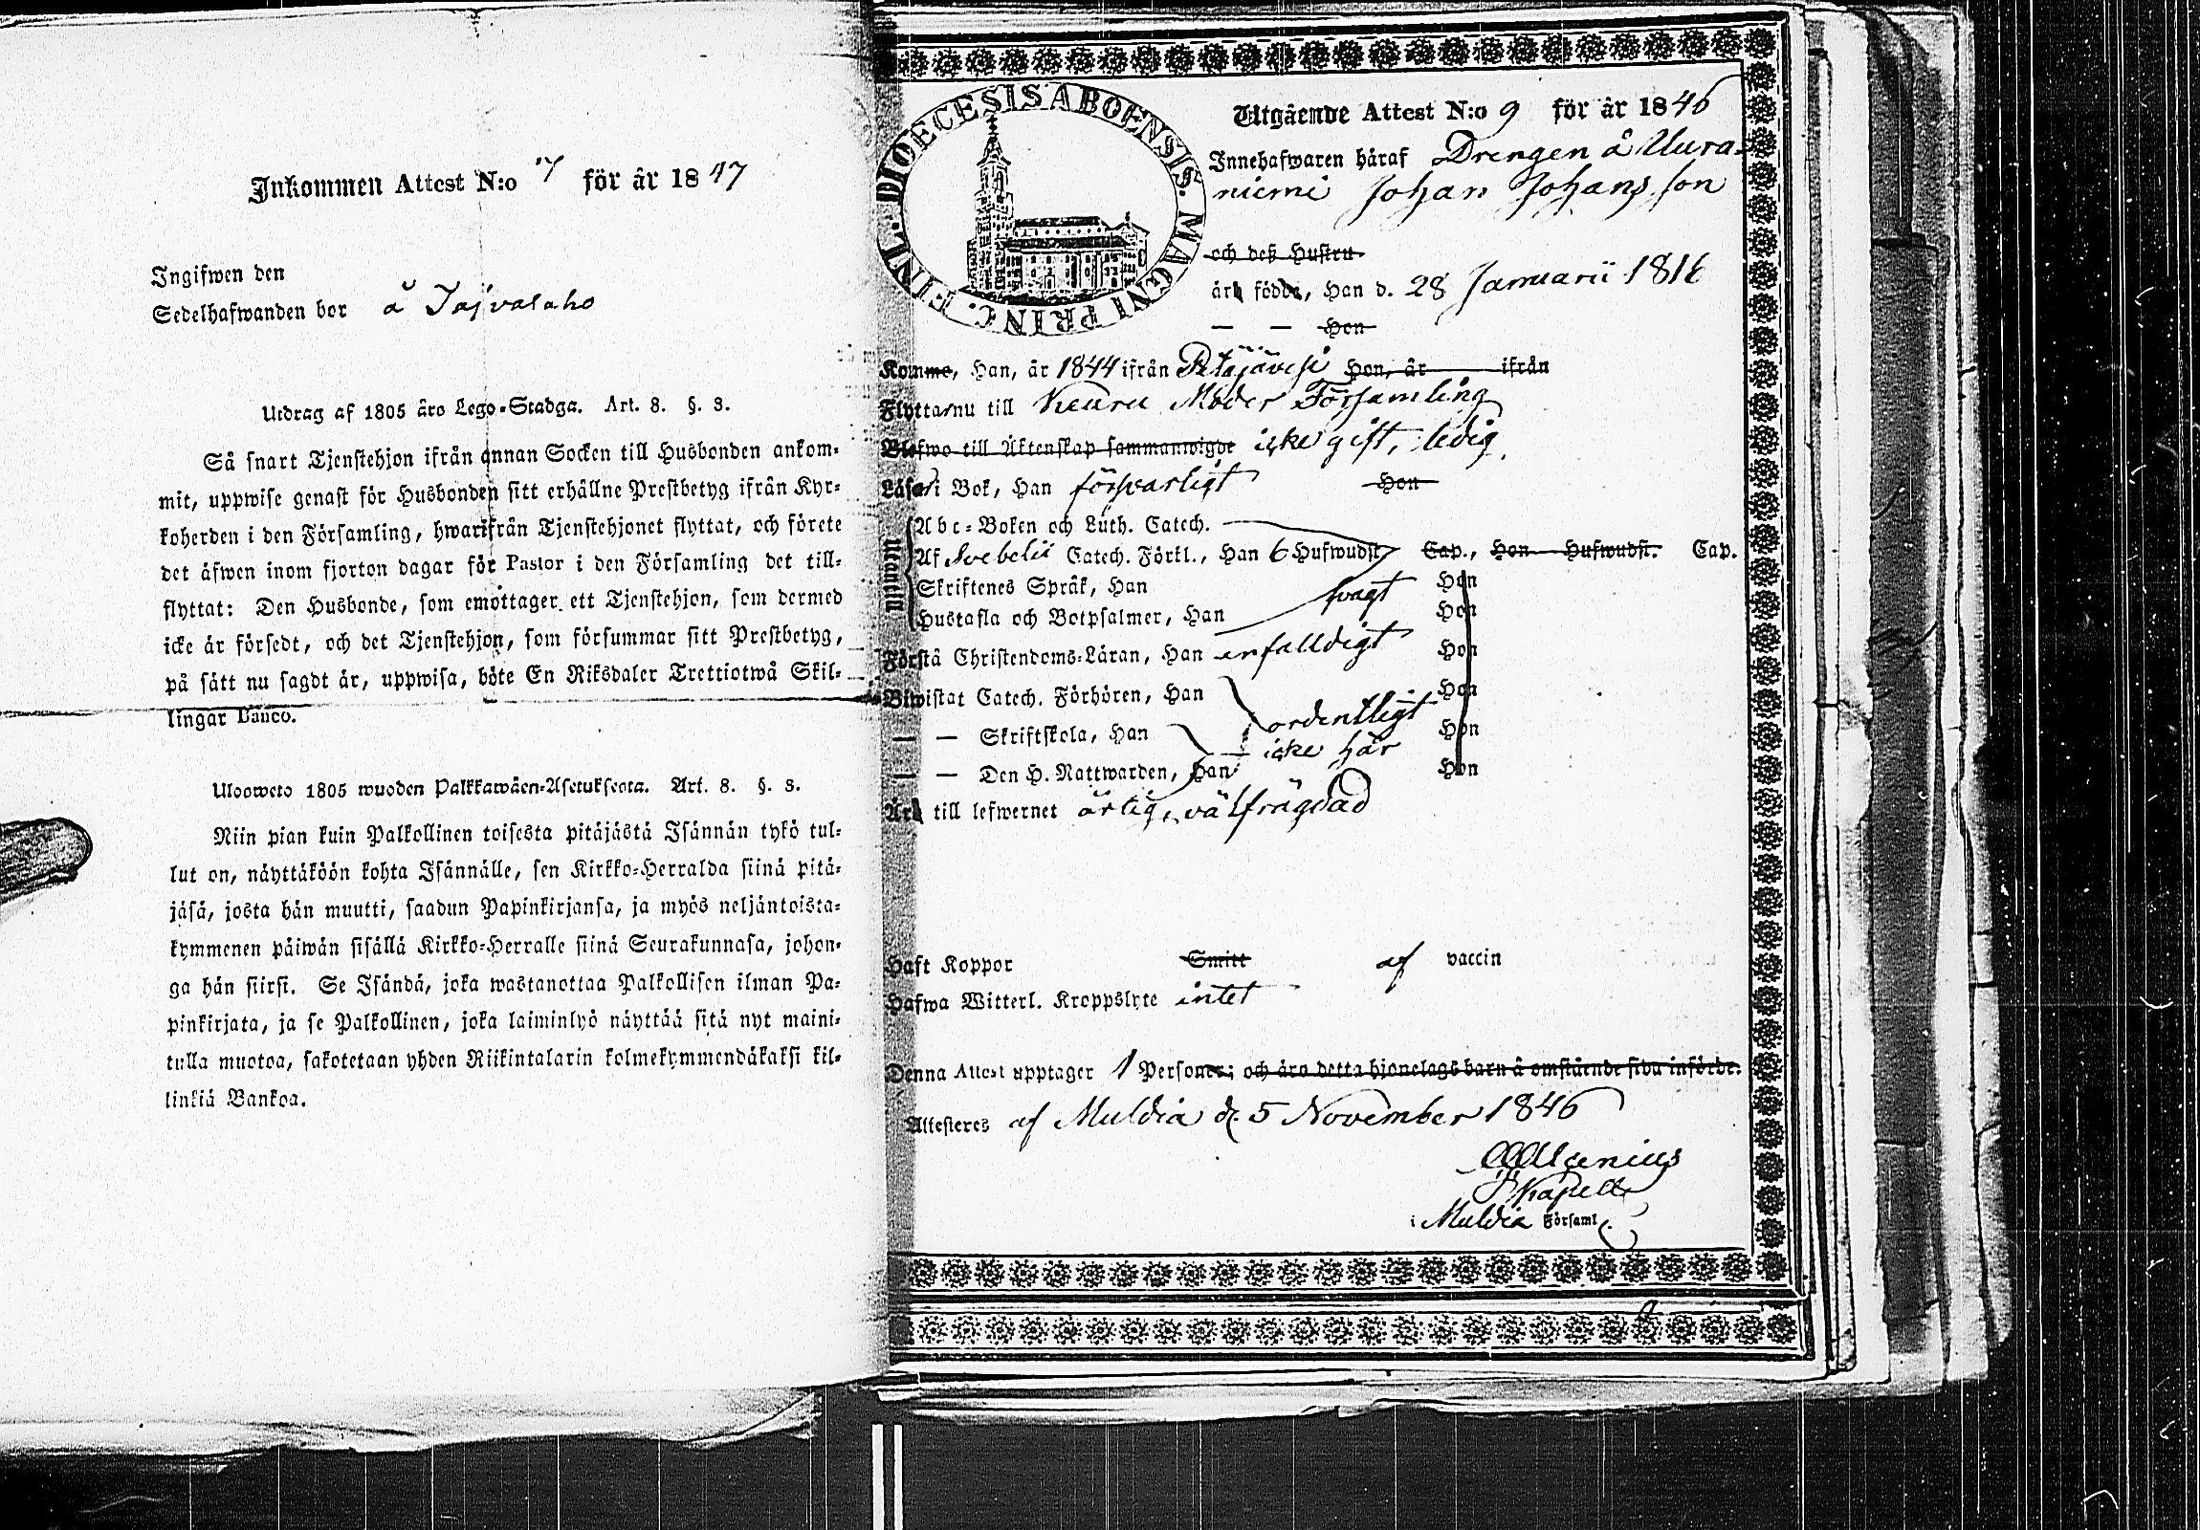 Inkommen Attest N:o 7 för år 1847
Ingifwen den
Sedelhafwanden bor å Jajvalaho
Utdrag af 1805 års Lego-Stadga. Art. 8. §. 3.
Så snart Tjenstehjon ifrån annan Socken till Husbonden ankom-
mit, uppwise genast för Husbonden sitt erhållne Prestbetyg ifrån Kyr-
koherden i den Församling, hwarifrån Tjenstehjonet flyttat, och förete
det äfwen inom fjorton dagar för Pastor i den Församling det till-
flyttat: Den Husbonde, som emottager ett Tjenstehjon, som dermed
icke är försedt, och det Tjenstehjon, som försummar sitt Prestbetyg,
på sätt nu sagdt är, uppwisa, böte En Riksdaler Trettiotwå Skil-
lingar Banco.
Ulosweto 1805 wuoden Palkkawäen-Asetuksesta. Art. 8. §. 3.
Niin pian kuin Palkollinen toisesta pitäjästä Isännän tykö tul-
lut on, näyttäköön kohta Isännälle, sen Kirkko-Herralda siinä pitä-
jäsä, josta hän muutti, saadun Papinkirjansa, ja myös neljäntoista-
kymmenen päiwän sisällä Kirkko-Herralle siinä Seurakunnasa, johon-
ga hän siirsi. Se Isändä, joka wastanottaa Palkollisen ilman Pa-
pinkirjata, ja se Palkollinen, joka laiminlyö näyttää sitä nyt maini-
tulla muotoa, sakotetaan yhden Riikintalarin kolmekymmendäkaksi kil-
linkiä Bankoa.
FINL. DIOECESIS ABOENSIS. MAGNI PRINC.
Utgående Attest N:o 9 för år 1846
Innehafwaren häraf Drengen å Uura-
niemi Johan Johansson
och deß Hustru
är födde, Han d. 28 Januarii 1816
— — Hon
Komme, Han, år 1844 ifrån Petäjävesi Hon, år ifrån
Flyttar nu till Keuru Moder Församling
Blefwo till Äktenskap sammanwigde icke gift, ledig.
Läser i Bok, Han försvarligt Hon
Utantill
Abc-Boken och Luth. Catech.
Af Svebelii Catech. Förkl., Han 6 Hufwudst. Cap., Hon Hufwudst. Cap.
Skriftenes Språk, Han svagt Hon
Hustafla och Botpsalmer, Han Hon
Förstå Christendoms-Läran, Han enfalldigt Hon
Biwistat Catech. Förhören, Han ordentligt Hon
— — Skriftskola, Han icke här Hon
— — Den H. Nattwarden, Han Hon
Är till lefwernet ärlig, välfrägdad
Haft Koppor Smitt af vaccin
Hafwa Witterl. Kroppslyte intet
Denna Attest upptager 1 Personer; och äro detta hjonelags barn å omstående sida införde.
Attesteres af Muldia d. 5 November 1846
Kapell
i Muldia Församl.